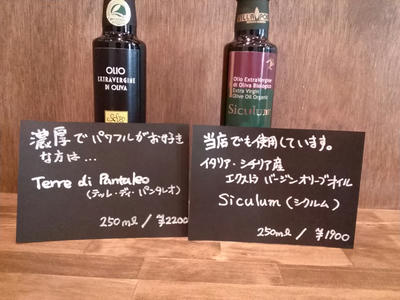 OLIO
EXTRAVERGINE
DI OLIVA
Olio ExtraVergine
di Oliva Biologico
Extra Virgin
Olive Oil Organic
Siculum
濃厚でパワフルがお好き
な方は…
Terre di Pantaleo
(テッレ・ディ・パンタレオ)
250ml / ¥2200
当店でも使用しています。
イタリア・シチリア産
エクストラバージンオリーブオイル
Siculum (シクルム)
250ml / ¥1900